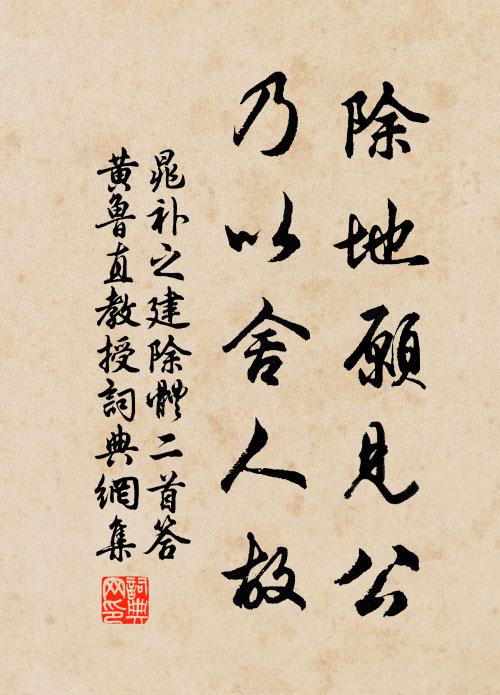 除地願見公
乃以舍人故
晁补之建除體二首答
黃魯直教授詞典網集
詞典網印